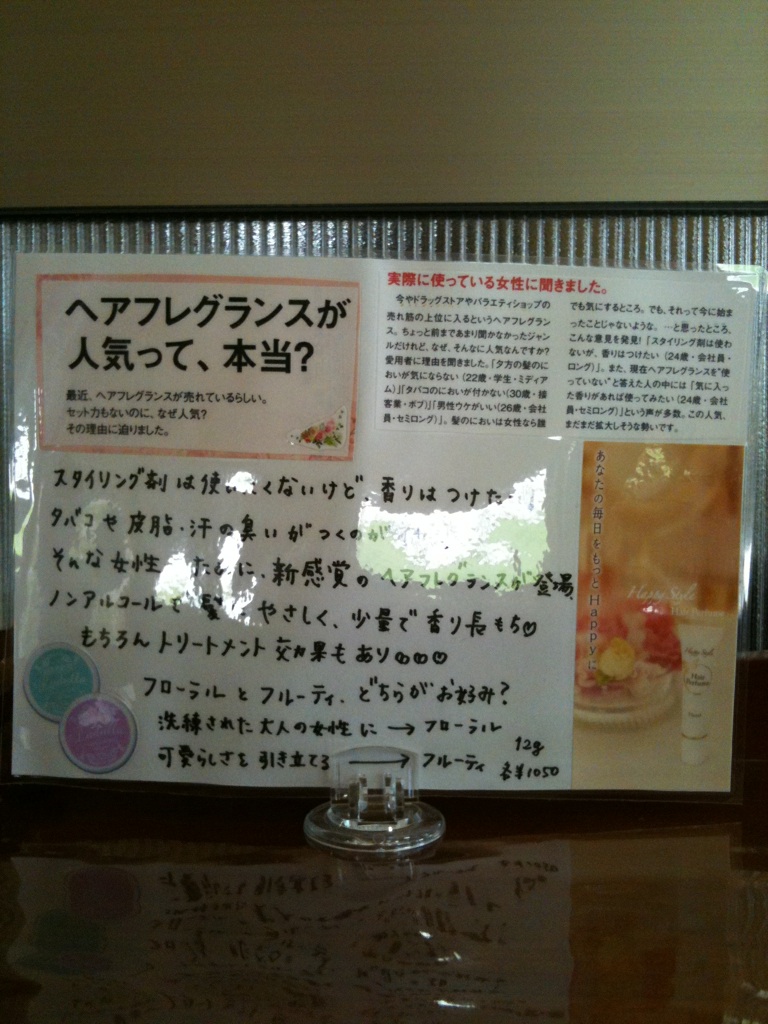 ヘアフレグランスが
人気って、本当?
最近、ヘアフレグランスが売れているらしい。
セット力もないのに、なぜ人気?
その理由に迫りました。
実際に使っている女性に聞きました。
今やドラッグストアやバラエティショップの
売れ筋の上位に入るというヘアフレグラン
ス。ちょっと前まであまり聞かなかったジャン
ルだけれど、なぜ、そんなに人気なんですか?
愛用者に理由を聞きました。「夕方の髪のに
おいが気にならない(22歳・学生・ミディア
ム)」「タバコのにおいが付かない(30歳・接
客業・ボブ)」「男性ウケがいい(26歳・会社
員・セミロング)」。髪のにおいは女性なら誰
でも気にするところ。でも、それって今に始ま
ったことじゃないような。…と思ったところ、
こんな意見を発見!「スタイリング剤は使わ
ないが、香りはつけたい(24歳・会社員・
ロング)」。また、現在ヘアフレグランスを"使
っていない"と答えた人の中には「気に入っ
た香りがあれば使ってみたい(24歳・会社
員・セミロング)」という声が多数。この人気、
まだまだ拡大しそうな勢いです。
スタイリング剤は使いたくないけど、香りはつけた
タバコや皮脂・汗の臭いがつくのが
そんな女性のために、新感覚のヘアフレグランスが登場
ノンアルコールで髪にやさしく、少量で香り長もち♡
もちろんトリートメント効果もあり♡♡♡
フローラルとフルーティ、どちらがお好み?
洗練された大人の女性に→フローラル
可愛らしさを引き立てる→フルーティ
12g
各¥1050
あなたの毎日をもっとHappyに
Happy Style
Hair Perfume
Happy Style
Hair
Perfume